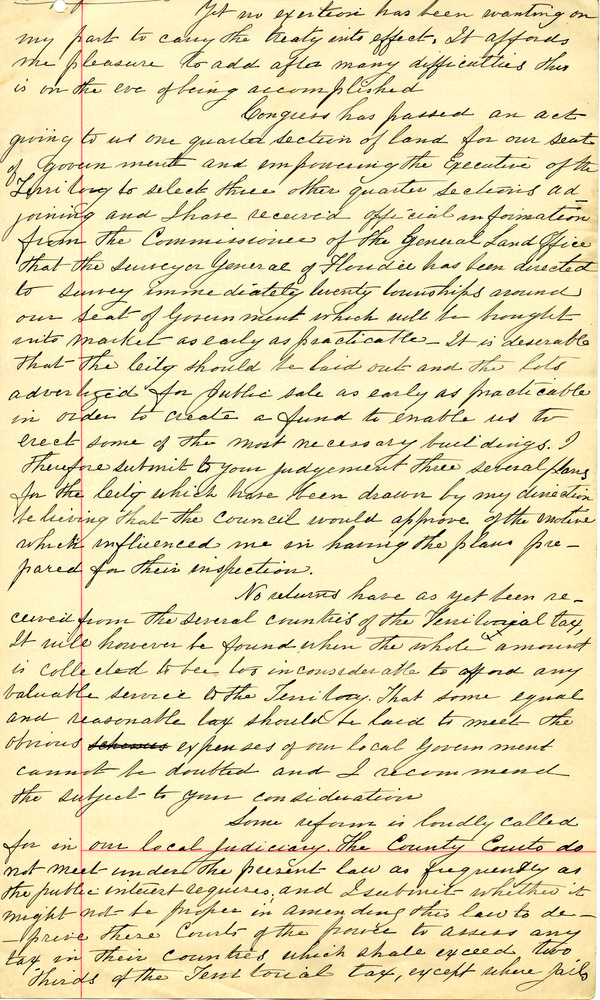 Yet no exertion has been wanting on
my part to carry the treaty into effect. It affords
me pleasure to add after many difficulties this
is on the eve of being accomplished
Congress has passed an act
giving to us one quarter section of land for our seat
of government and empowering the Executive of the
Territory to select three other quarter sections ad-
joining and I have received official information
from the Commissioner of the General Land Office
that the surveyor General of Florida has been directed
to survey immediately twenty townships around
our seat of Government which will be brought
into market as early as practicable - It is deserable
that the city should be laid out and the lots
advertized for public sale as early as practicable
in order to create a fund to enable us to
erect some of the most necessary buildings. I
therefore submit to your judgement three several plans
for the city which have been drawn by my direction
believing that the council would approve of the motive
which influenced me in having the plans pre-
pared for their inspection.
No returns have as yet been re-
ceived from the several counties of the Territorial tax,
It will however be found when the whole amount
is collected to bee too inconsiderable to afford any
valuable service to the Territory. That some equal
and reasonable tax should be laid to meet the
obvious schemes expenses of our local Government
cannot be doubted and I recommend
the subject to your consideration
Some reform is loudly called
for in our local judiciary. The County Courts do
not meet under the present law as frequently as
the public interest requires, and I submit whether it
might not be proper in amending this law to de-
-prive these Courts of the power to assess any
tax in their counties which shall exceed two
thirds of the Territorial tax, except where Jails